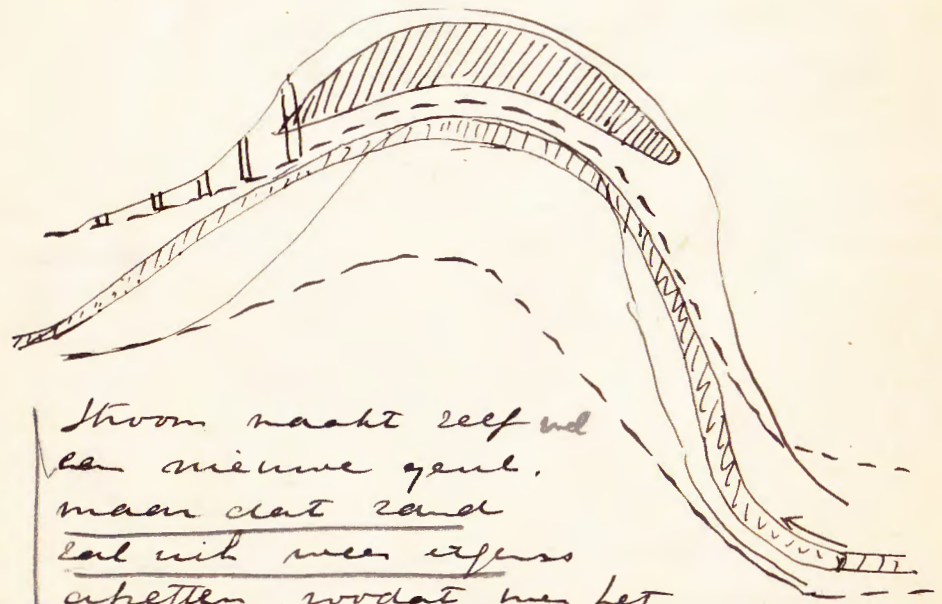 Stroom maakt zelf wel
een nieuwe geul.
maar dat zand
zal zich weer ergens
afzetten zoodat men het